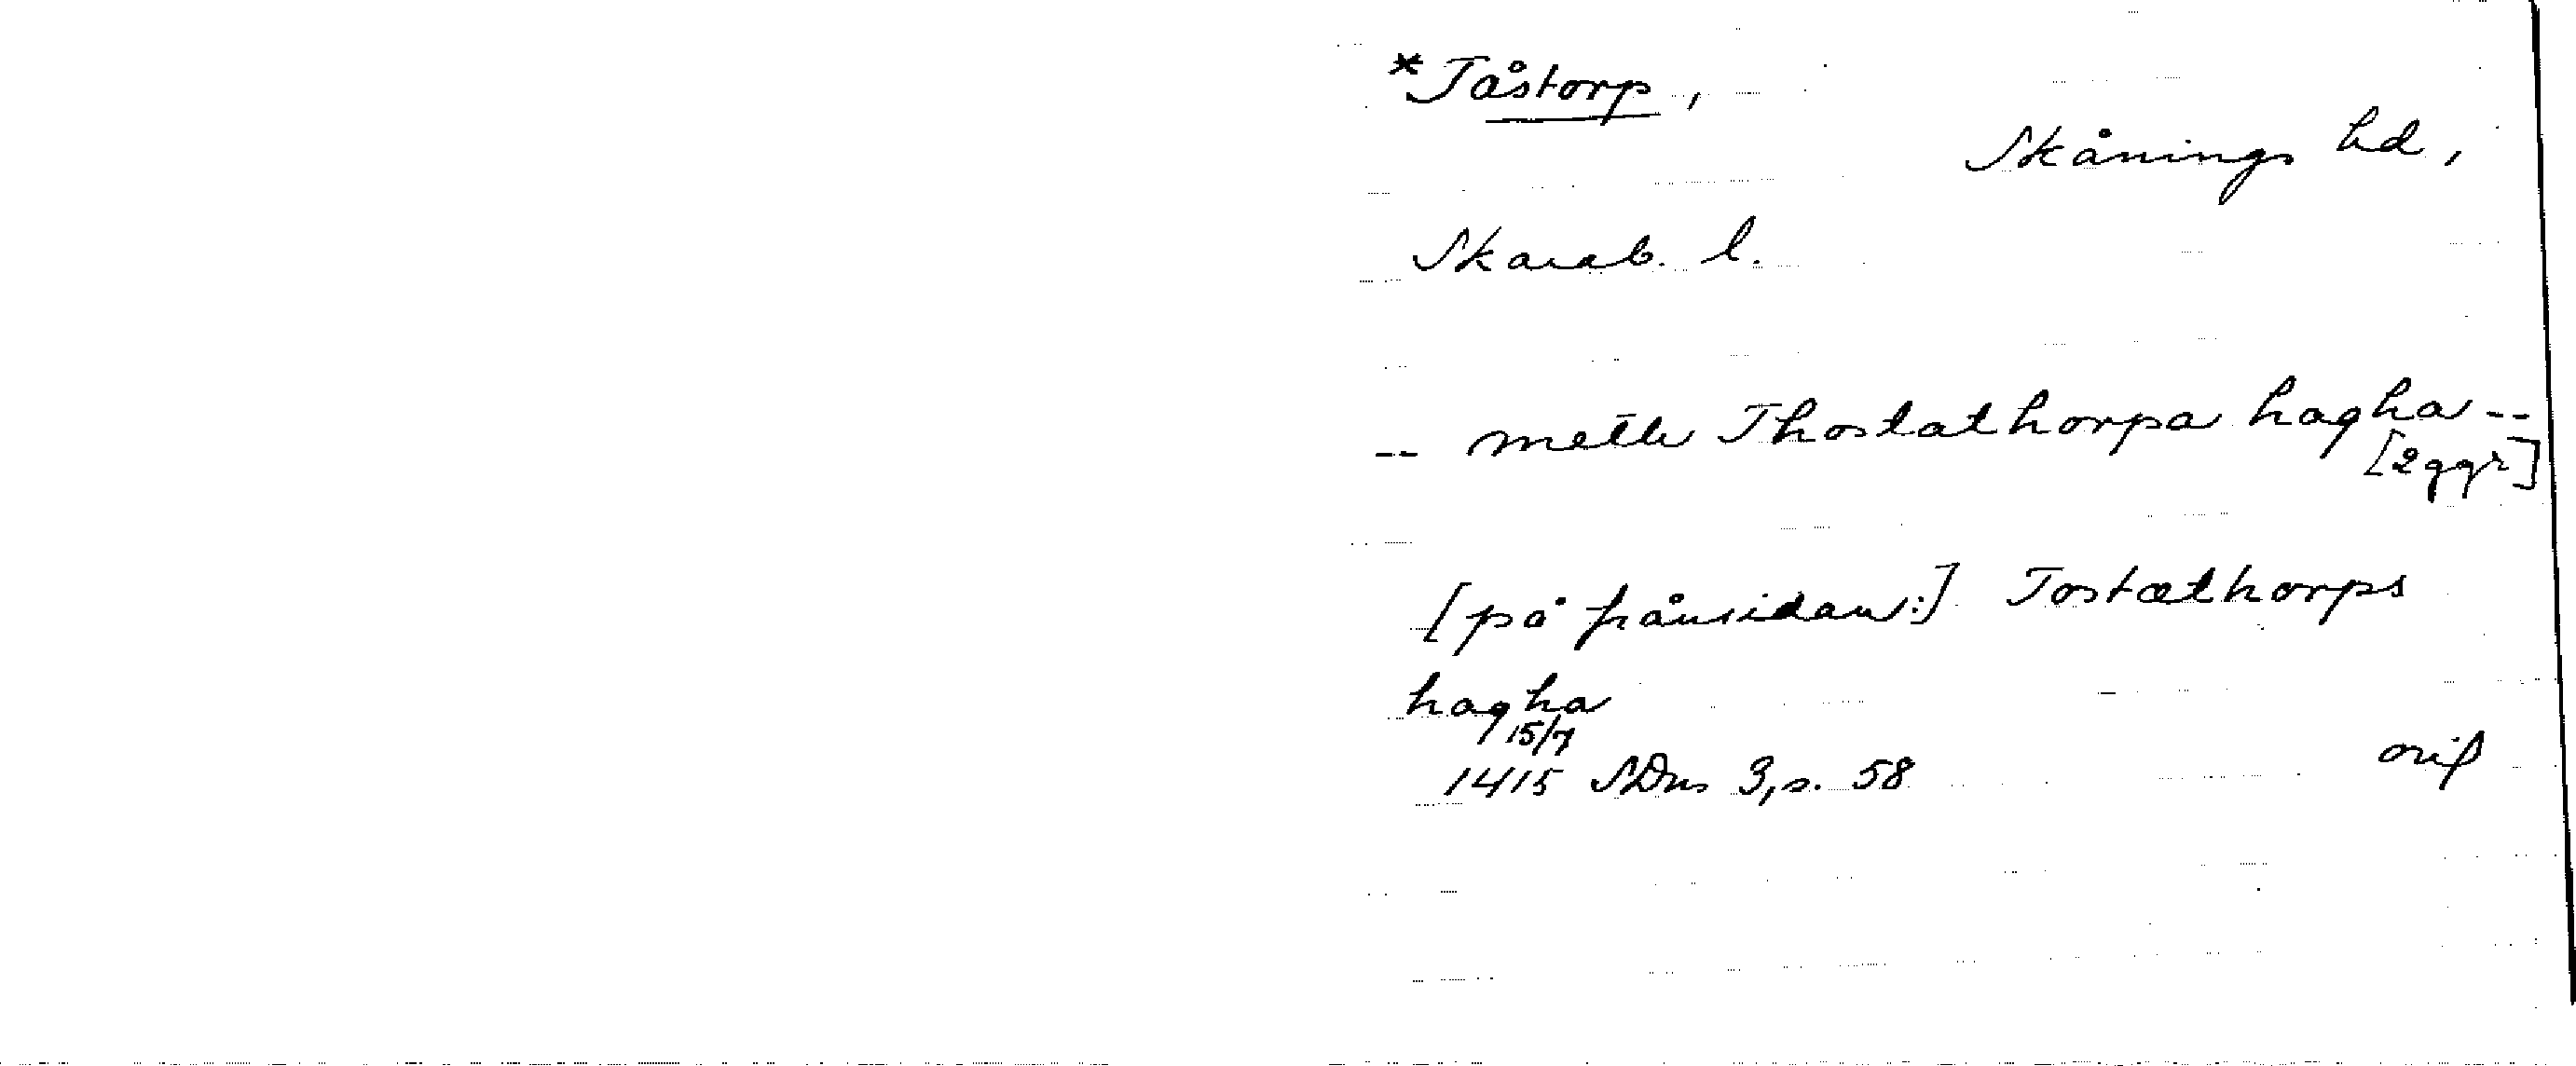 *Tåstorp,
Skånings hd,
Skarab. l.
-- mella Thostathorpa hagha --
[2 ggr]
[på frånsidan:] Tostæthorps
hagha
15/7
1415 SDns 3, s. 58
orig